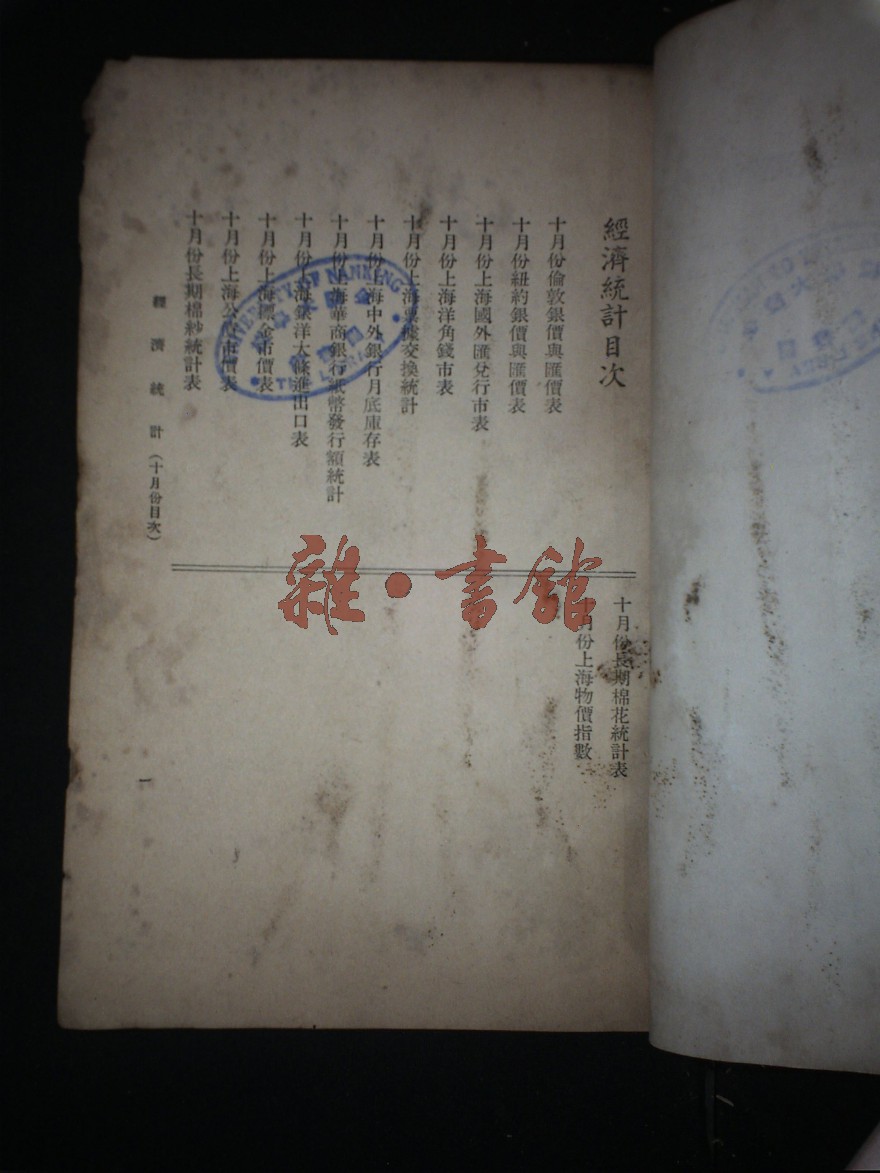 經濟統計目次
十月份倫敦銀價與匯價表
十月份紐約銀價與匯價表
十月份上海國外匯兌行市表
十月份上海洋角錢市表
十月份上海票據交換統計
十月份上海中外銀行月底庫存表
十月份上海華商銀行紙幣發行額統計
十月份上海銀洋大條進出口表
十月份上海標金市價表
十月份上海公債市價表
十月份長期棉紗統計表
十月份長期棉花統計表
月份上海物價指數
經濟統計(十月份目次)
一
雜·書館
UNIVERSITY OF NANKING